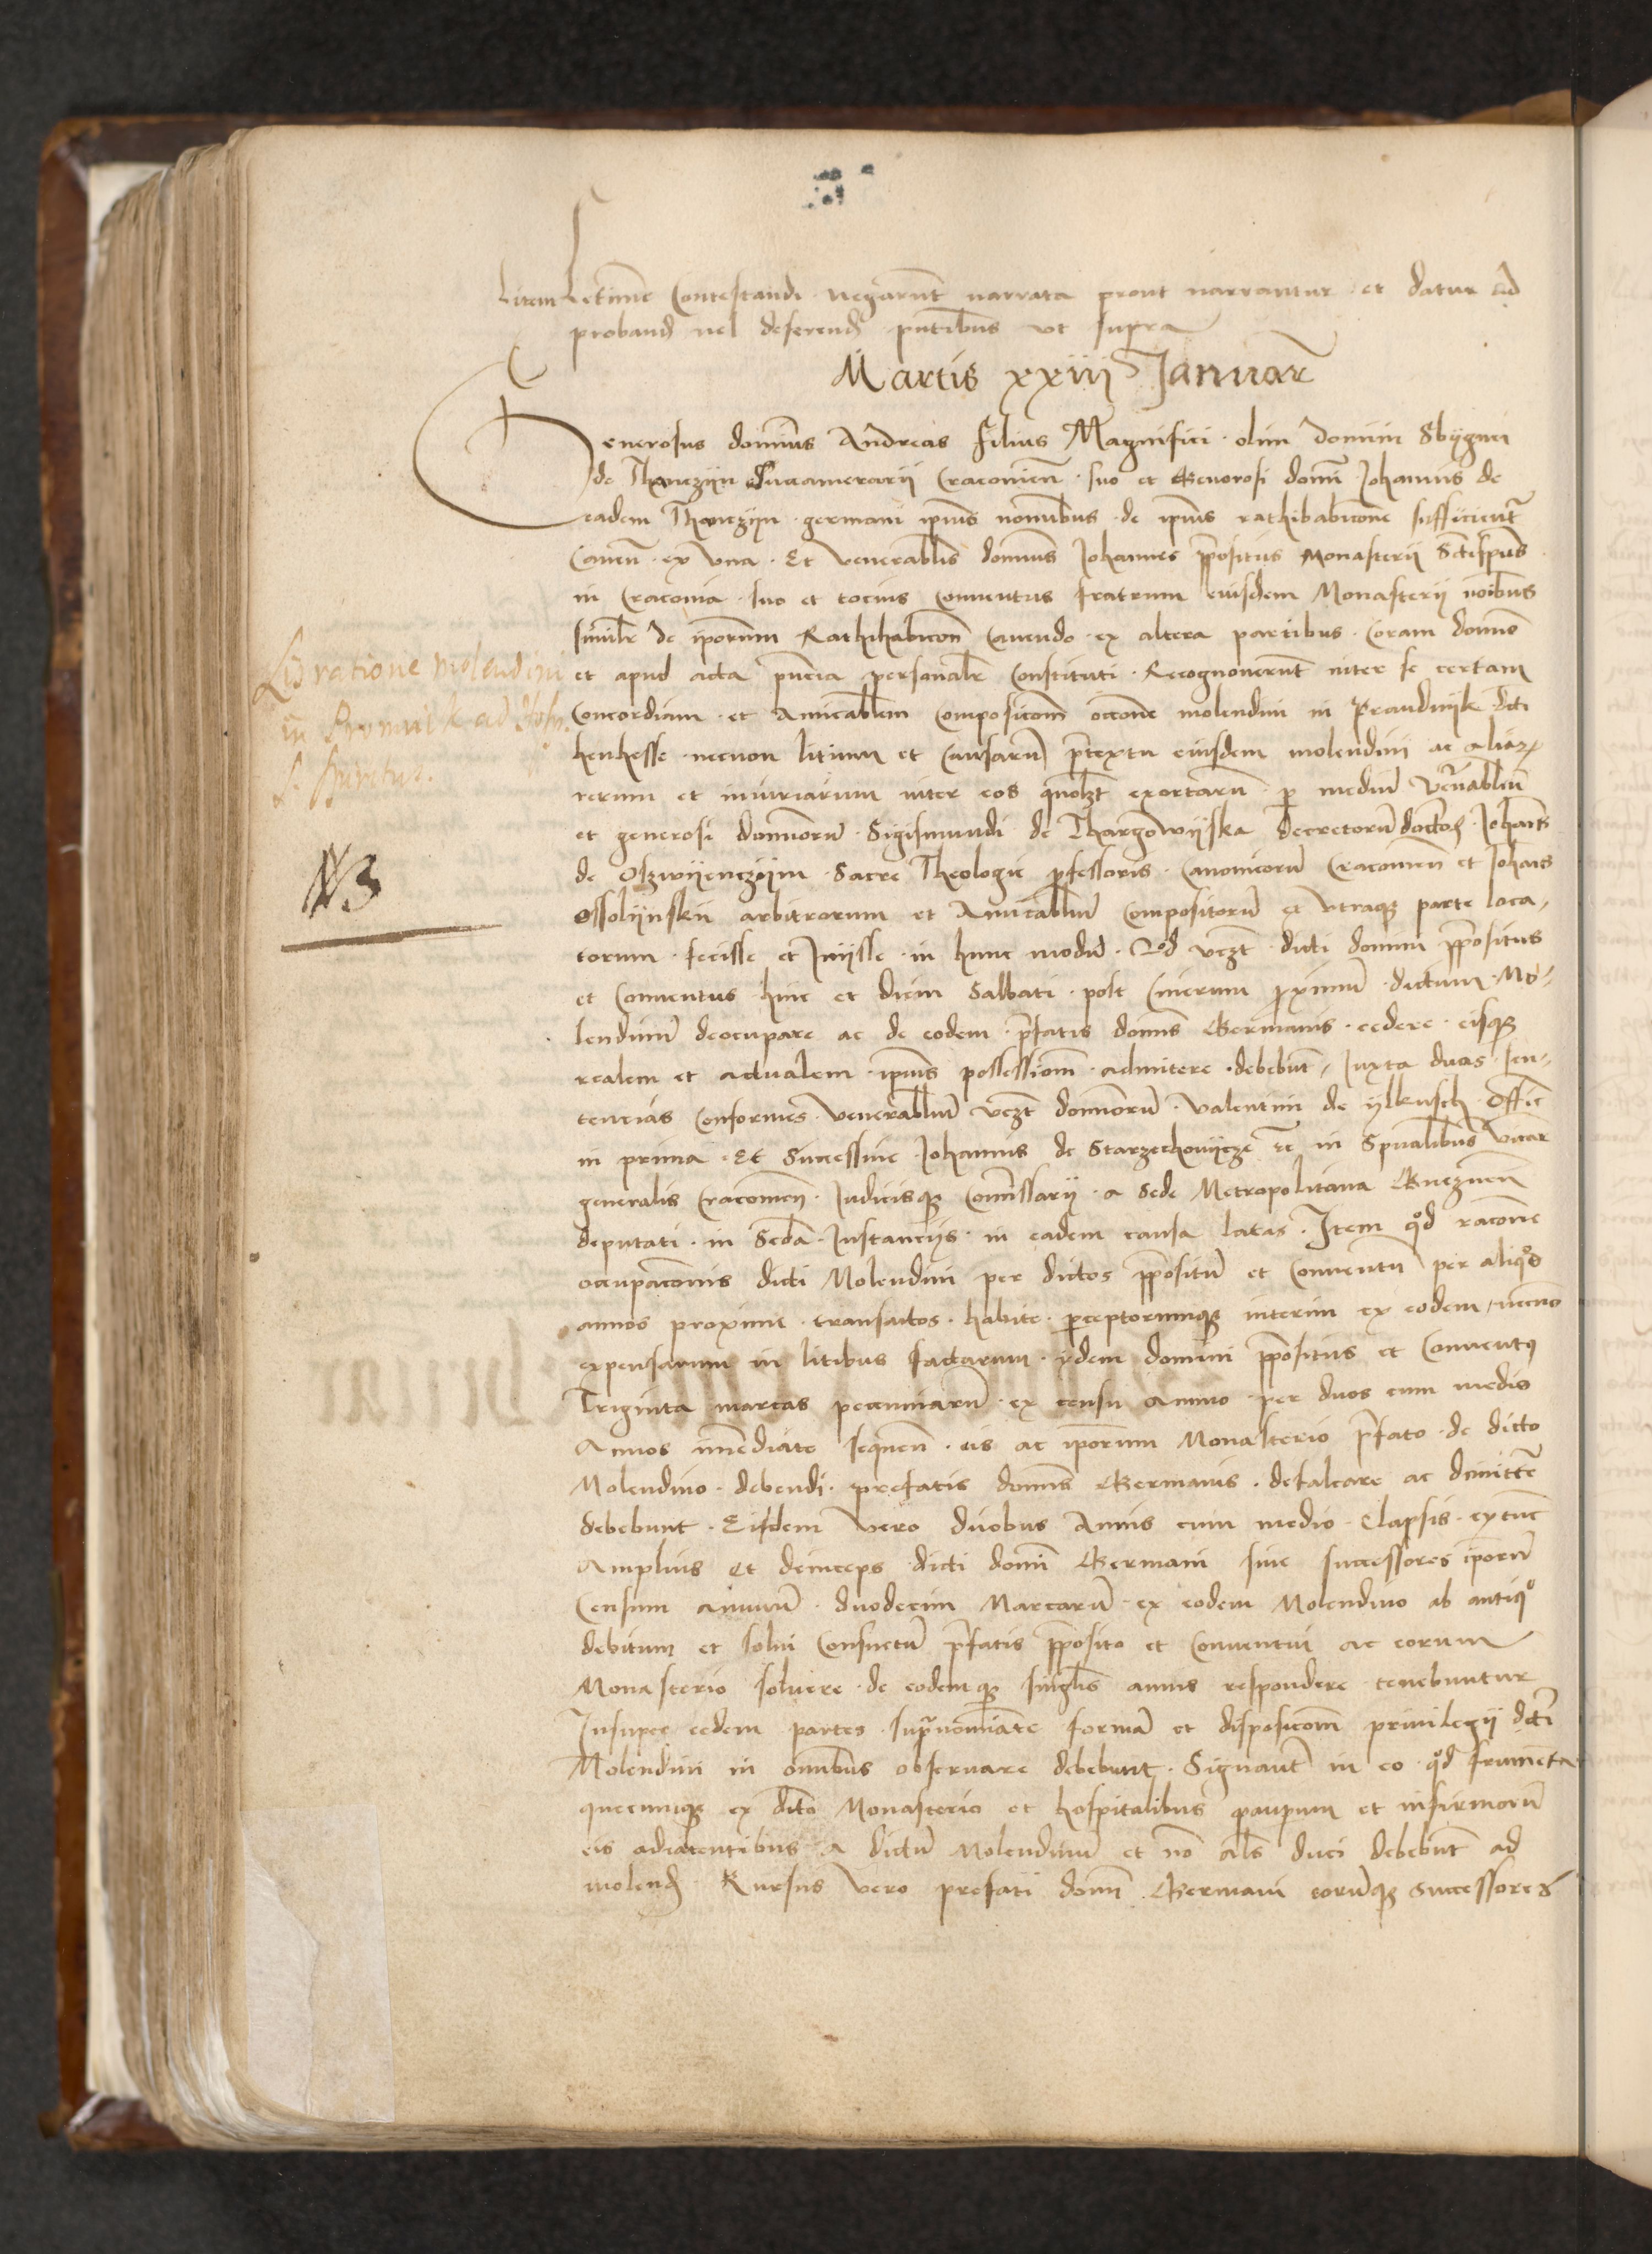 litem l̄r̄time Contestandi negarunt narrata prout narrantur et datur ad
proband vel deferend pntibus vt supra
Martis xxiii Januar
Generosus dominus Andreas filius Magnifici olim domini Sbignei
de Thanczyn Succamerarii Cracouien suo et Generosi domi Johannis de
eadem Thanczyn germani ipius nominibus de ipius rathihabicione sufficient
Cauen ex vna Et Venerablis dominus Johannes ppositus Monasterii Sctispus
in Cracouia suo et tocius Conuentus fratrum eiusdem Monasterii noibus
similr de iporum Rathihabicion Cauendo ex altera partibus Coram domino
et apud acta pncia personalr Constituti Recognouerunt inter se certam
Concordiam et Amicablem Compositcom occone molendini in Prandnyk dcti
Lis ratione molendini
in Promnik ad Hosp.
S. Spiritus.
henhesse necnon litium et Causarum ptextu eiusdem molendini ac aliar
rerum et iniuriarum inter eos quolzt exortarum p medium Venablium
et generosi dominorum Sigismundi de Thargowyska decretorum doctor Johanis
NB
de Oszwyenczym Sacre Theologie pfessoris Canonicorum Cracouien et Johais
Ossolynskii arbitrorum et Amicablium Compositorum ex vtraque parte loca
torum fecisse et Inysse in hunc modum Qod vczt dicti domini ppositus
et Conuentus hinc et diem Sabbati post Cinerum pximum dictum Mo
lendinum deocupare ac de eodem pfatis domis Germanis cedere eisque
realem et actualem ipius possessiom admitere debebunt Juxta duas sen
tencias Conformes Venerablium vczt dominorum Valentini de ylkusch Offic
in prima Et Successiue Johannis de Starzechowycze rc in Spualibus Vicar
generalis Cracouien Judicisque Comissarii a Sede Metropolitana Gneznen
deputati in Secda Instanciis in eadem causa latas Item qod racone
ocupaconis dicti Molendini per dictos ppositum et Conuentum per aliqos
annos proxime transactos habite perceptorumque interim ex eodem necno
expensarum in litibus factarum ydem domini ppositus et Conuentus
Triginta marcas pecuniarum ex censu Annuo per duos cum medio
Annos imediate sequen eis ac iporum Monasterio pfato de dicto
Molendino debendi prefatis domis Germanis defalcare ac dimittere
debebunt Eisdem vero duobus Annis cum medio elapsis extunc
Amplius et deinceps dicti domi Germani siue successores iporum
Censum annuum duodecim Marcarum ex eodem Molendino ab antiqo
debitum et solui Consuetum pfatis pposito et Conuentui ac eorum
Monasterio soluere de eodemque singlis annis respondere tenebuntur
Insuper eedem partes supranomiate formam et disposicom priuilegii dcti
Molendini in omibus obseruare debebunt Signant in eo qod frumenta
quecunque ex dicto Monasterio et hospitalibus pauperum et infirmorum
eis adiacentibus a dictum Molendinum et no als duci debebunt ad
molend Rursus vero prefati domi Germani eorumque Successores